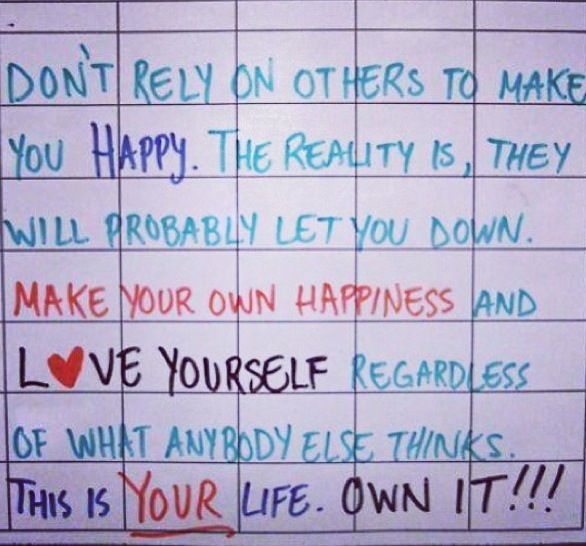 DON'T RELY ON OTHERS TO MAKE
YOU HAPPY. THE REALITY IS, THEY
WILL PROBABLY LET YOU DOWN.
MAKE YOUR OWN HAPPINESS AND
L❤VE YOURSELF REGARDLESS
OF WHAT ANYBODY ELSE THINKS.
THIS IS YOUR LIFE. OWN IT!!!